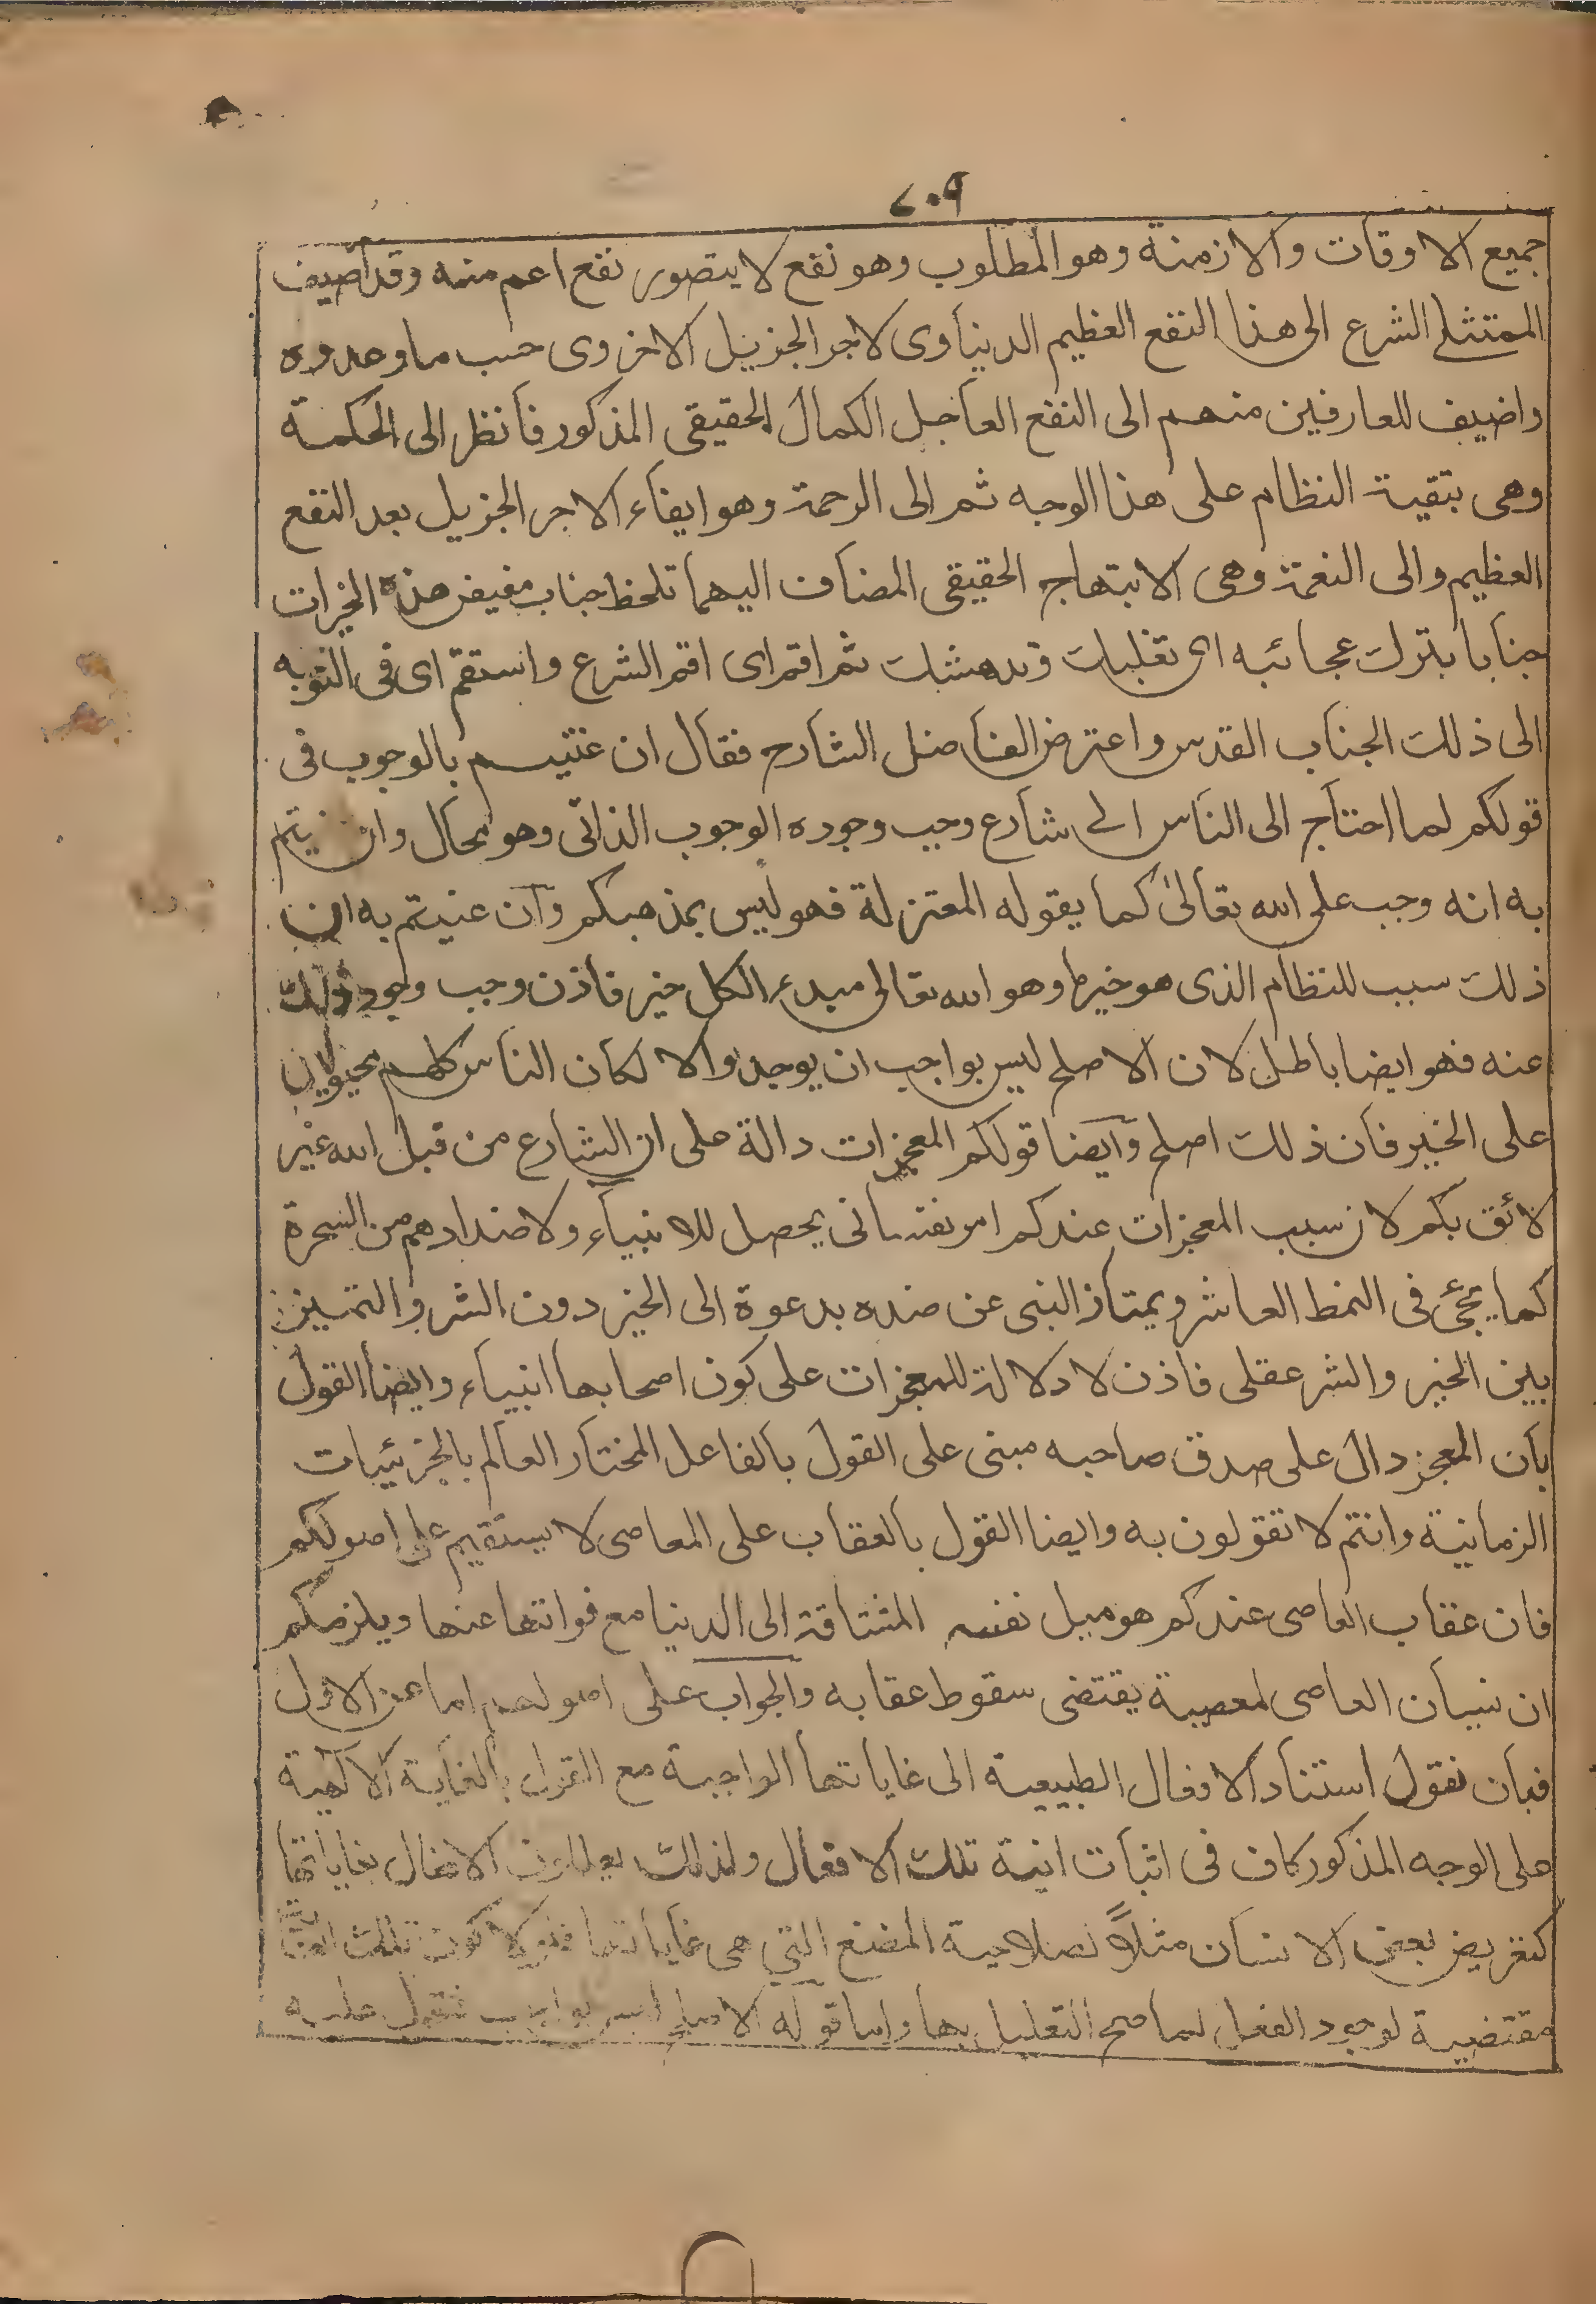 ٤٠٩
جميع الاوقات والازمنة وهو المطلوب وهو نفع لا يتصور نفع اعم منه وقد اضيف
الممتثلى الشرع الى هذا النفع العظيم الدنياوى لاجر الجزيل الاخروى حسب ما وعدوه
واضيف للعارفين منهم الى النفع العاجل الكمال الحقيقى المذكور فانظر الى الحكمة
وهى بتقية النظام على هذا الوجه ثم الى الرحمة وهو ايفاء الاجر الجزيل بعد النفع
العظيم والى النعمة وهى الابتهاج الحقيقى المضاف اليهما تلحظ جناب مفيض هذه الخيرات
جنابا يترك عجائبه اى تغلبك وتدهشك ثم اقم اى اقم الشرع واستقم اى فى التوجه
الى ذلك الجناب القدس واعترض الفاضل الشارح فقال ان عنيتم بالوجوب فى
قولكم لما احتاج الى الناس الى شارع وجب وجوده الوجوب الذاتى وهو محال وان عنيتم
به انه وجب على الله تعالى كما يقوله المعتزلة فهو ليس بمذهبكم وان عنيتم به ان
ذلك سبب للنظام الذى هو خير ما وهو الله تعالى مبدء الكل خير فاذن وجب وجود ذلك
عنه فهو ايضا باطل لان الاصلح ليس بواجب ان يوجد والا لكان الناس كلهم مجبولين
على الخير فان ذلك اصلح وايضا قولكم المعجزات دالة على ان الشارع من قبل الله غير
لائق بكم لان سبب المعجزات عندكم امر نفسانى يحصل للانبياء ولاضدادهم من السحرة
كما يجئ فى النمط العاشر ويمتاز النبى عن ضده بدعوة الى الخير دون الشر والتميز
بين الخير والشر عقلى فاذن لا دلالة للمعجزات على كون اصحابها انبياء وايضا القول
بان المعجز دال على صدق صاحبه مبنى على القول بالفاعل المختار العالم بالجزئيات
الزمانية وانتم لا تقولون به وايضا القول بالعقاب على المعاصى لا يستقيم على اصولكم
فان عقاب العاصى عندكم هو ميل نفسه المشتاقة الى الدنيا مع فواتها عنها ويلزمكم
ان نسيان العاصى لمعصية يقتضى سقوط عقابه والجواب على اصولهم اما عن الاول
فبان نقول استناد الافعال الطبيعية الى غاياتها الواجبة مع القول بالغاية الالهية
على الوجه المذكور كاف فى اثبات انية تلك الافعال ولذلك يعللون الافعال بغاياتها
كتعريض بعض الانسان مثلاً لصلاحية المضغ التى هى غاياتها فلو لا كون تلك الغاية
مقتضية لوجود الفعل لما صح التعليل بها واما قوله الاصلح ليس بواجب فنقول عليه